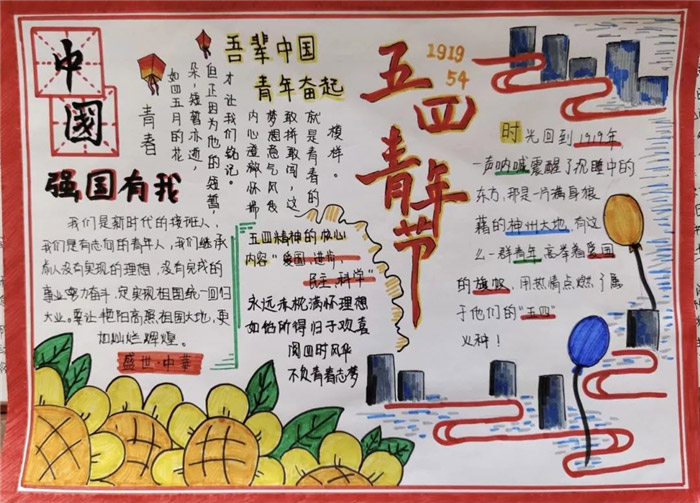 中
國
强国有我
青春
如四五月的花
朵，短暂亦逝，
但正因为他的短暂，
才让我们铭记。
吾辈中国
青年奋起
内心澄澈怀
梦想意气风发
敢拼敢闯，这
就是青春的
模样。
我们是新时代的接班人，
我们是有志向的青年人，我们继承
前人没有实现的理想，没有完成的
事业努力奋斗，定实现祖国统一回归
大业。要让艳阳高照祖国大地，更
加灿烂辉煌。
盛世·中華
五四精神的核心
内容“爱国，进步，
民主，科学”
永远赤忱满怀理想
所得归于欢喜
时风华
不负青春志梦
五四青年节
1919
54
时光回到1919年
一声呐喊震醒了沉睡中的
东方，那是一片满身狼
藉的神州大地，有这
么一群青年高举着爱国
的旗帜，用热情点燃了属
于他们的“五四”
火种！